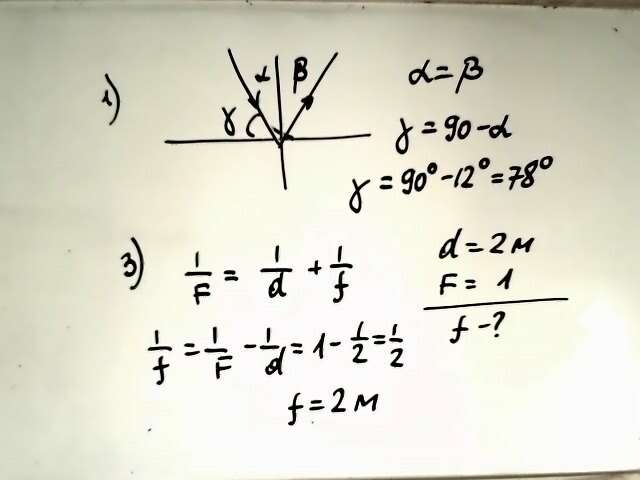 1)
α β
γ
α = β
γ = 90 - α
γ = 90° - 12° = 78°
3)
1/F = 1/d + 1/f
d = 2м
F = 1
f - ?
1/f = 1/F - 1/d = 1 - 1/2 = 1/2
f = 2м